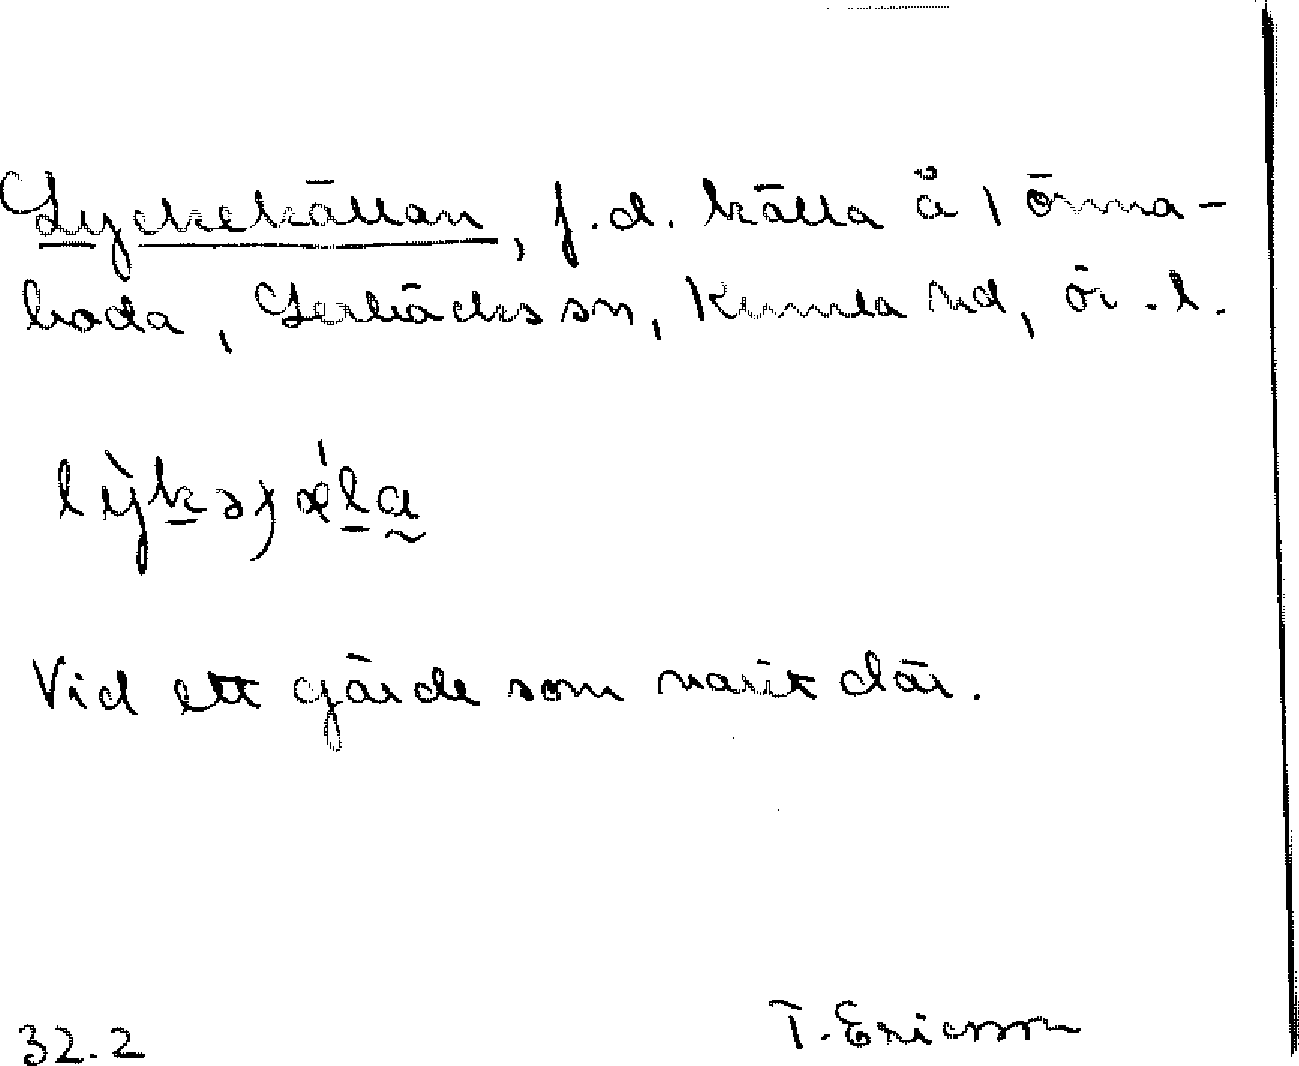 Lyckekällan, f.d. källa å Törnna-
boda, Lerbäcks sn, Kumla hd, ör. l.
lỳkəʃǽla
Vid ett gärde som varit där.
32.2
T. Ericsson